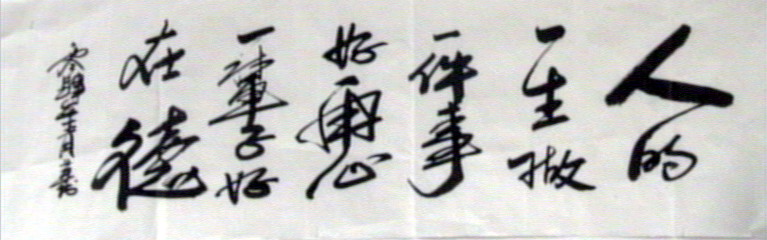 人的
一生做
一件事
好心
一輩子好
在德